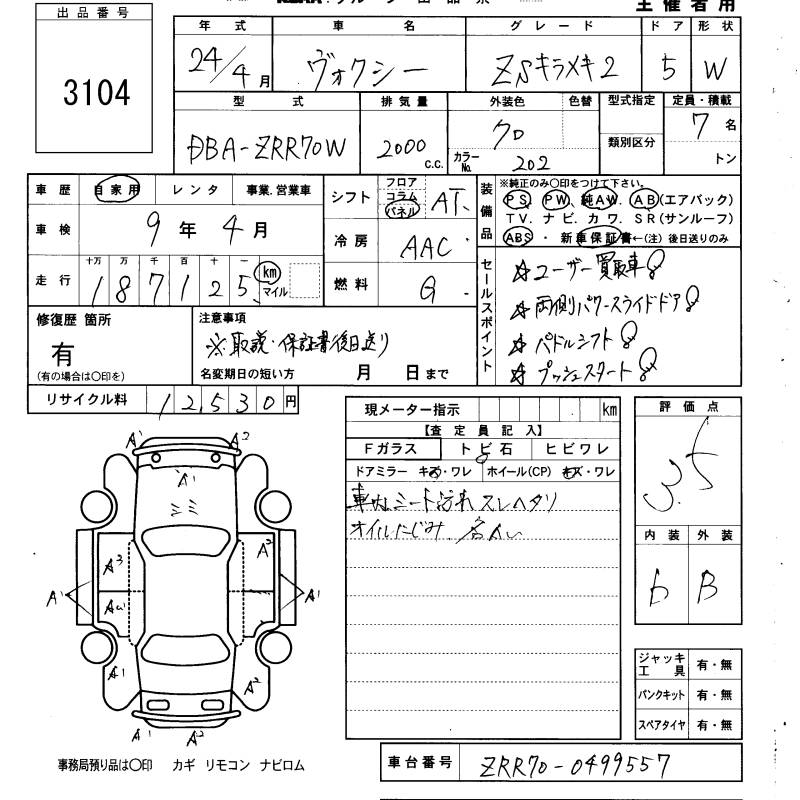 出品番号
3104
主催者用
年式 車名 グレード ドア 形状
24/4月 ヴォクシー ZSキラメキ2 5 W
型式 排気量 外装色 色替 型式指定 定員・積載
DBA-ZRR70W 2000c.c. クロ 類別区分 7名
カラーNo. 202 トン
車歴 自家用 レンタ 事業.営業車
車検 9年4月
走行 十万 万 千 百 十 一
187125 km マイル
シフト フロア コラム パネル AT.
冷房 AAC
燃料 G
装備品 ※純正のみ〇印をつけて下さい。
PS. PW. 純AW. AB(エアバック)
TV. ナビ. カワ. SR(サンルーフ)
ABS・新車保証書←(注)後日送りのみ
セールスポイント
☆ユーザー買取車
☆両側パワースライドドア
☆パドルシフト
☆プッシュスタート
修復歴 箇所
有
(有の場合は〇印を)
注意事項
※取説・保証書後日送り
名変期日の短い方 月 日まで
リサイクル料 12,530円
現メーター指示 km
【査定員記入】
Fガラス トビ石 ヒビワレ
ドアミラー キズ・ワレ ホイール(CP) キズ・ワレ
車内シート汚れスレヘタリ
オイルにじみ
評価点
3.5
内装 外装
B
A1 A2
A1
A3 A2
A1 A1
A1 A2
A1 A2
ジャッキ工具 有・無
パンクキット 有・無
スペアタイヤ 有・無
事務局預り品は〇印 カギ リモコン ナビロム
車台番号 ZRR70-0499557